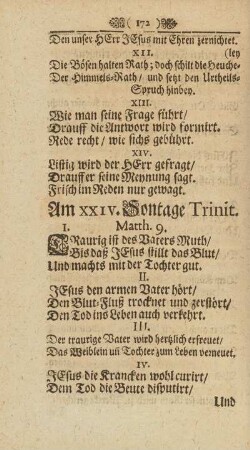 ( 172 )
Den unser HErr JEsus mit Ehren zernichtet.
XII. (ley
Die Bösen halten Rath; doch schilt die Heuche-
Der Himmels-Rath/ und setzt den Urtheils-
Spruch hinbey.
XIII.
Wie man seine Frage führt/
Drauff die Antwort wird formirt.
Rede recht/ wie sichs gebührt.
XIV.
Listig wird der HErr gefragt/
Drauff er seine Meynung sagt.
Frisch im Reden nur gewagt.
Am XXIV. Sontage Trinit.
I. Matth. 9.
TRaurig ist des Vaters Muth/
Bis daß JEsus stillt das Blut/
Und machts mit der Tochter gut.
II.
JEsus den armen Vater hört/
Den Blut-Fluß trocknet und zerstört/
Den Tod ins Leben auch verkehrt.
III.
Der traurige Vater wird hertzlich erfreuet/
Das Weiblein uñ Tochter zum Leben verneuet.
IV.
JEsus die Krancken wohl curirt/
Dem Tod die Beute disputirt/
Und